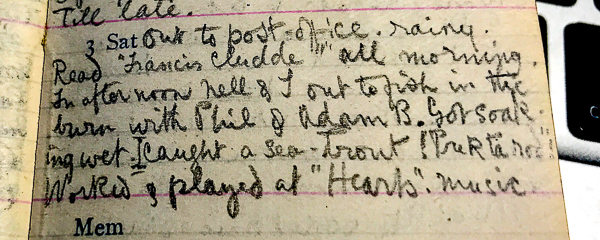 Till late.
3 Sat Out to post-office. rainy.
Read "Francis Cludde" all morning.
In afternoon Nell & I out to fish in the
burn with Phil & Adam B. Got soak-
ing wet. I caught a sea-trout!
Worked & played at "Hearts". music.
Mem